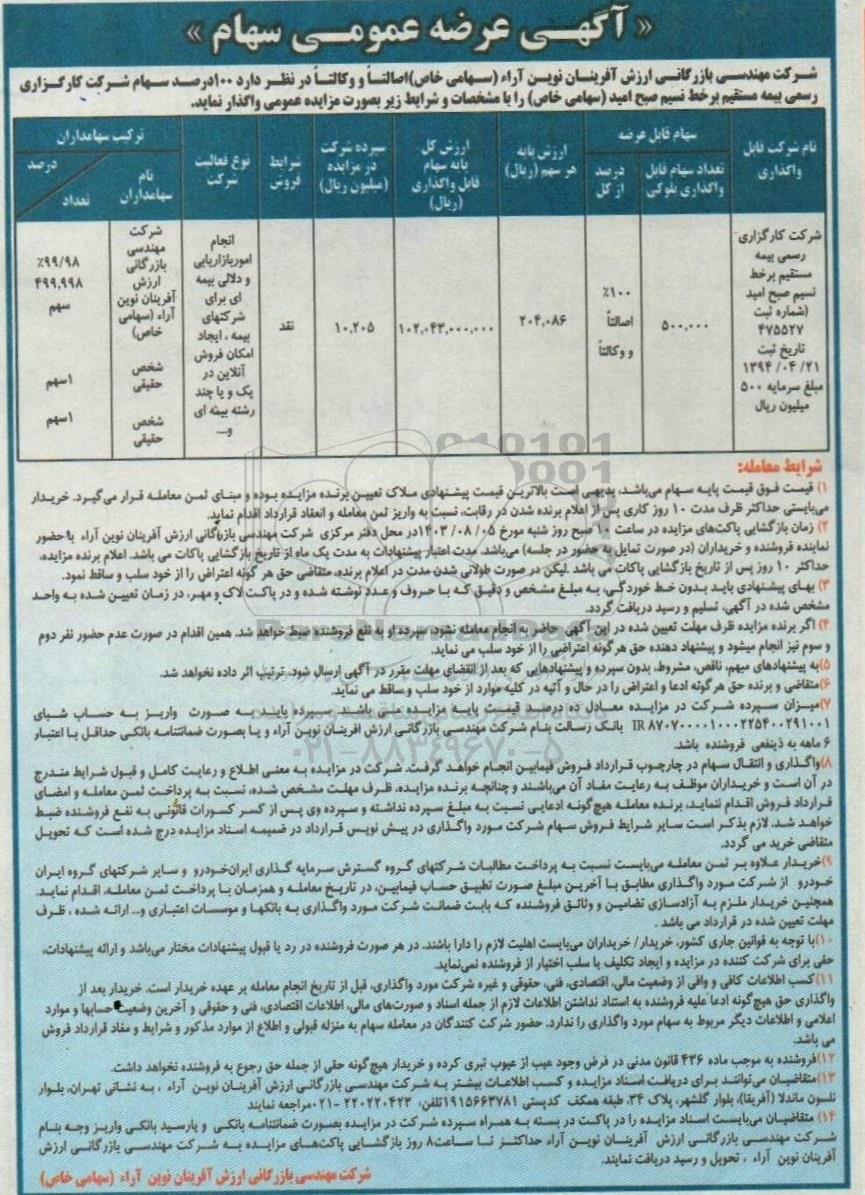 « آگهی عرضه عمومی سهام »
شرکت مهندسی بازرگانی ارزش آفرینان نوین آراء (سهامی خاص)اصالتاً و وکالتاً در نظر دارد ۱۰۰درصد سهام شرکت کارگزاری
رسمی بیمه مستقیم برخط نسیم صبح امید (سهامی خاص) را با مشخصات و شرایط زیر بصورت مزایده عمومی واگذار نماید.
نام شرکت قابل واگذاری
سهام قابل عرضه
تعداد سهام قابل واگذاری بلوکی
درصد از کل
ارزش پایه هر سهم (ریال)
ارزش کل پایه سهام قابل واگذاری (ریال)
سپرده شرکت در مزایده (میلیون ریال)
شرایط فروش
نوع فعالیت شرکت
ترکیب سهامداران
نام سهامداران
درصد
تعداد
شرکت کارگزاری
رسمی بیمه
مستقیم برخط
نسیم صبح امید
(شماره ثبت
۴۷۵۵۲۷
تاریخ ثبت
۱۳۹۴/۰۴/۲۱
مبلغ سرمایه ۵۰۰
میلیون ریال
۵۰۰,۰۰۰
۱۰۰٪
اصالتاً
و وکالتاً
۲۰۴,۰۸۶
۱۰۲,۰۴۳,۰۰۰,۰۰۰
۱۰,۲۰۵
نقد
انجام
اموربازاریابی
و دلالی بیمه
ای برای
شرکتهای
بیمه ، ایجاد
امکان فروش
آنلاین در
یک و یا چند
رشته بیمه ای
و...
شرکت
مهندسی
بازرگانی
ارزش
آفرینان نوین
آراء (سهامی
خاص)
۹۹/۹۸٪
۴۹۹,۹۹۸
سهم
شخص
حقیقی
۱سهم
شخص
حقیقی
۱سهم
شرایط معامله:
۱) قیمت فوق قیمت پایه سهام می‌باشد، بدیهی است بالاترین قیمت پیشنهادی ملاک تعیین برنده مزایده بوده و مبنای ثمن معامله قرار می‌گیرد. خریدار
می‌بایستی حداکثر ظرف مدت ۱۰ روز کاری پس از اعلام برنده شدن در رقابت، نسبت به واریز ثمن معامله و انعقاد قرارداد اقدام نماید.
۲) زمان بازگشایی پاکت‌های مزایده در ساعت ۱۰ صبح روز شنبه مورخ ۱۴۰۳/۰۸/۰۵ در محل دفتر مرکزی شرکت مهندسی بازرگانی ارزش آفرینان نوین آراء با حضور
نماینده فروشنده و خریداران (در صورت تمایل به حضور در جلسه) می‌باشد. مدت اعتبار پیشنهادات به مدت یک ماه از تاریخ بازگشایی پاکات می باشد. اعلام برنده مزایده،
حداکثر ۱۰ روز پس از تاریخ بازگشایی پاکات می باشد .لیکن در صورت طولانی شدن مدت در اعلام برنده، متقاضی حق هر گونه اعتراض را از خود سلب و ساقط نمود.
۳) بهای پیشنهادی باید بدون خط خوردگی، به مبلغ مشخص و دقیق که با حروف و عدد نوشته شده و در پاکت لاک و مهر، در زمان تعیین شده به واحد
مشخص شده در آگهی، تسلیم و رسید دریافت گردد.
۴) اگر برنده مزایده ظرف مهلت تعیین شده در این آگهی حاضر به انجام معامله نشود، سپرده او به نفع فروشنده ضبط خواهد شد. همین اقدام در صورت عدم حضور نفر دوم
و سوم نیز انجام میشود و پیشنهاد دهنده حق هر گونه اعتراضی را از خود سلب می نماید.
۵)به پیشنهادهای مبهم، ناقص، مشروط، بدون سپرده و پیشنهادهایی که بعد از انقضای مهلت مقرر در آگهی ارسال شود، ترتیب اثر داده نخواهد شد.
۶)متقاضی و برنده حق هر گونه ادعا و اعتراض را در حال و آتیه در کلیه موارد از خود سلب و ساقط می نماید.
۷)میزان سپرده شرکت در مزایده معادل ده درصد قیمت پایه مزایده می باشد. سپرده باید به صورت واریز به حساب شبای
IR ۸۷۰۷۰۰۰۰۱۰۰۰۲۲۵۴۰۰۲۹۱۰۰۱ بانک رسالت بنام شرکت مهندسی بازرگانی ارزش افرینان نوین آراء و یا بصورت ضمانتنامه بانکی حداقل با اعتبار
۶ ماهه به ذینفعی فروشنده باشد.
۸)واگذاری و انتقال سهام در چارچوب قرارداد فروش فیمابین انجام خواهد گرفت. شرکت در مزایده به معنی اطلاع و رعایت کامل و قبول شرایط مندرج
در آن است و خریداران موظف به رعایت مفاد آن می‌باشند و چنانچه برنده مزایده، ظرف مهلت مشخص شده، نسبت به پرداخت ثمن معامله و امضای
قرارداد فروش اقدام ننماید، برنده معامله هیچ‌گونه ادعایی نسبت به مبلغ سپرده نداشته و سپرده وی پس از کسر کسورات قانونی به نفع فروشنده ضبط
خواهد شد. لازم بذکر است سایر شرایط فروش سهام شرکت مورد واگذاری در پیش نویس قرارداد در ضمیمه اسناد مزایده درج شده است که تحویل
متقاضی خرید می گردد.
۹)خریدار علاوه بر ثمن معامله می‌بایست نسبت به پرداخت مطالبات شرکتهای گروه گسترش سرمایه گذاری ایران‌خودرو و سایر شرکتهای گروه ایران
خودرو از شرکت مورد واگذاری مطابق با آخرین مبلغ صورت تطبیق حساب فیمابین، در تاریخ معامله و همزمان با پرداخت ثمن معامله، اقدام نماید.
همچنین خریدار ملزم به آزادسازی تضامین و وثائق فروشنده که بابت ضمانت شرکت مورد واگذاری به بانکها و موسسات اعتباری و... ارائه شده ، ظرف
مهلت تعیین شده در قرارداد می باشد .
۱۰)با توجه به قوانین جاری کشور، خریدار/ خریداران می‌بایست اهلیت لازم را دارا باشند. در هر صورت فروشنده در رد یا قبول پیشنهادات مختار می‌باشد و ارائه پیشنهادات،
حقی برای شرکت کننده در مزایده و ایجاد تکلیف یا سلب اختیار از فروشنده نمی‌نماید.
۱۱)کسب اطلاعات کافی و وافی از وضعیت مالی، اقتصادی، فنی، حقوقی و غیره شرکت مورد واگذاری، قبل از تاریخ انجام معامله بر عهده خریدار است. خریدار بعد از
واگذاری حق هیچ‌گونه ادعا علیه فروشنده به استناد نداشتن اطلاعات لازم از جمله اسناد و صورت‌های مالی، اطلاعات اقتصادی، فنی و حقوقی و آخرین وضعیت حسابها و موارد
اعلامی و اطلاعات دیگر مربوط به سهام مورد واگذاری را ندارد. حضور شرکت کنندگان در معامله سهام به منزله قبولی و اطلاع از موارد مذکور و شرایط و مفاد قرارداد فروش
می باشد.
۱۲)فروشنده به موجب ماده ۴۳۶ قانون مدنی در فرض وجود عیب از عیوب تبری کرده و خریدار هیچ‌گونه حقی از جمله حق رجوع به فروشنده نخواهد داشت.
۱۳)متقاضیان می‌توانند برای دریافت اسناد مزایده و کسب اطلاعات بیشتر به شرکت مهندسی بازرگانی ارزش آفرینان نوین آراء ، به نشانی تهران، بلوار
نلسون ماندلا (آفریقا)، بلوار گلشهر، پلاک ۳۴، طبقه همکف کدپستی ۱۹۱۵۶۶۳۷۸۱تلفن: ۲۲۰۲۲۰۴۲۳-۰۲۱مراجعه نمایند
۱۴) متقاضیان می‌بایست اسناد مزایده را در پاکت در بسته به همراه سپرده شرکت در مزایده بصورت ضمانتنامه بانکی و یارسید بانکی واریز وجه بنام
شرکت مهندسی بازرگانی ارزش آفرینان نوین آراء حداکثر تا ساعت۸ روز بازگشایی پاکت‌های مزایده به شرکت مهندسی بازرگانی ارزش
آفرینان نوین آراء ، تحویل و رسید دریافت نمایند.
شرکت مهندسی بازرگانی ارزش آفرینان نوین آراء (سهامی خاص)
ParsNamadData
۰۲۱-۸۸۳۴۹۶۷۰-۵